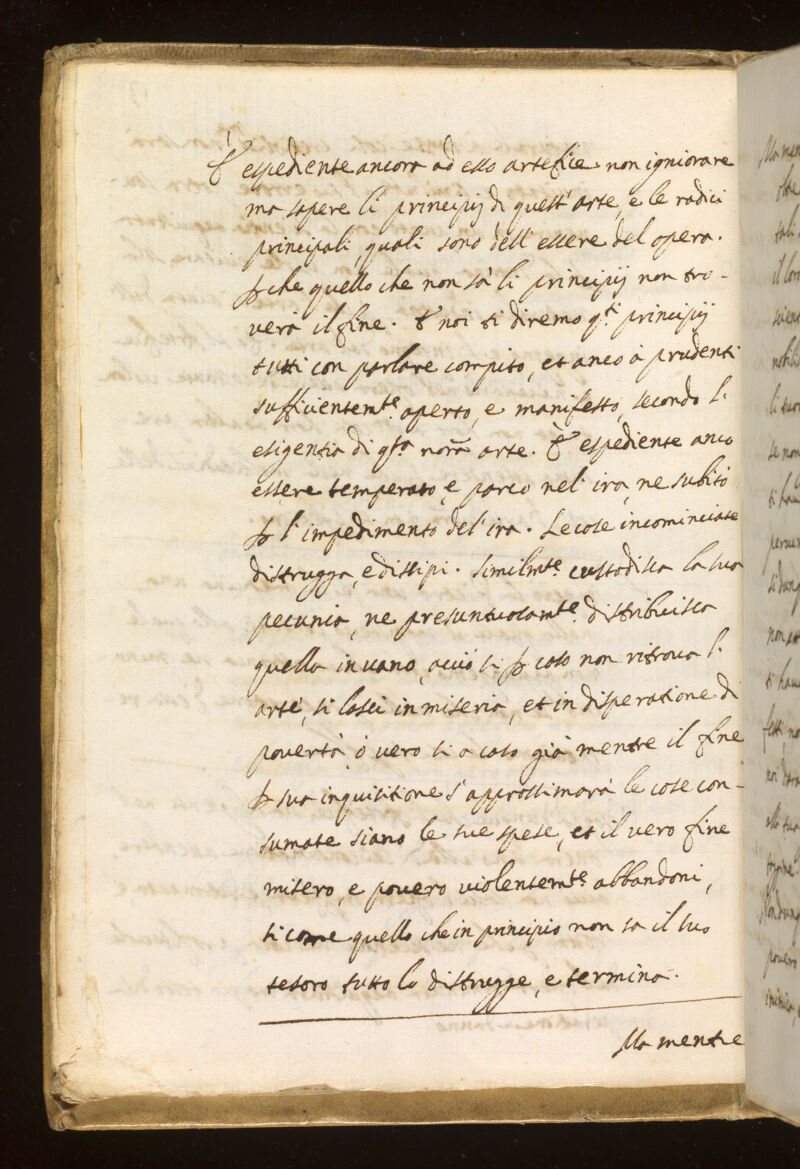 È espediente ancora ad esso artefice non igniorare
ma sapere li principij di quest'arte, e le radici
principali, quali sono dell'essere del opera.
p che quello che non sà li principij non tro-
verà il fine. E noi ti diremo q.ti principij
tutti con parlare compito, et anco à prudenti
sufficientem.te aperto, e manifesto, secondo l'
esigentia di q.sta nor̃a arte. È espediente anco
essere temperato, e parco nel'ira, ne subito
p l'impedimento del'ira. Le cose incominciate
distrugga, e dissipi. Similm.te custodisca la sua
pecunia, ne presuntuosam.te distribuisca
quella in vano, acciò si p caso non ritrova l'
arte, si lasci in miseria, et in disperatione di
povertà, ò vero si a caso già mentre il fine
p sua inquisitione s'approssimarà le cose con-
sumate siano le tue spese, et il vero fine
misero, e povero violentem.te abbandoni,
si come quello che in principio non sa il suo
tesoro tutto lo distrugge, e termina.
Ma mentre